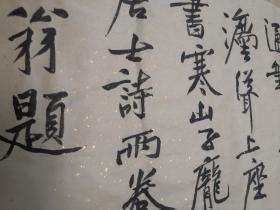 灋聳上座
書寒山子龐
居士詩兩卷
翁題